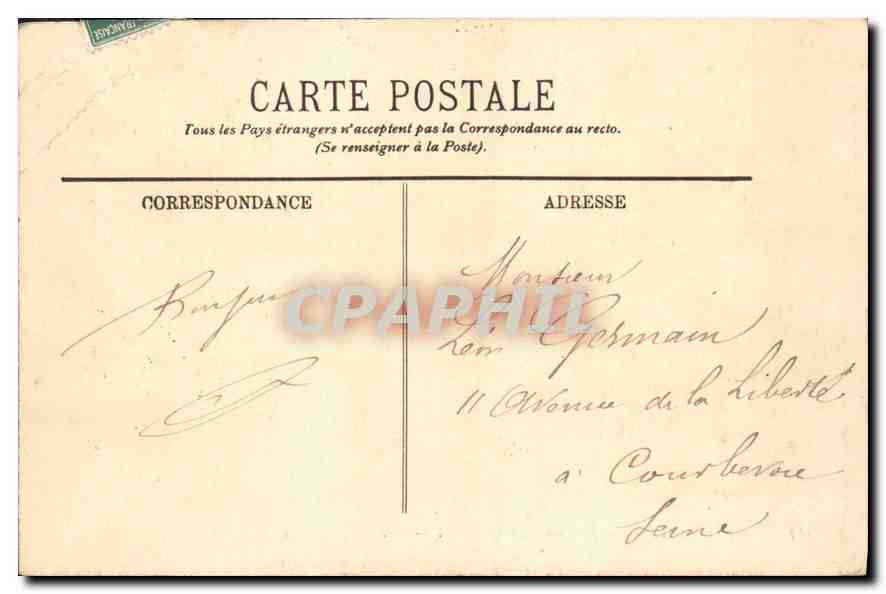 FRANÇAISE
CARTE POSTALE
Tous les Pays étrangers n'acceptent pas la Correspondance au recto.
(Se renseigner à la Poste).
CORRESPONDANCE
ADRESSE
Bonjour
CPAPHIL
Monsieur
Léon Germain
11 Avenue de la Liberté
à Courbevoie
Seine